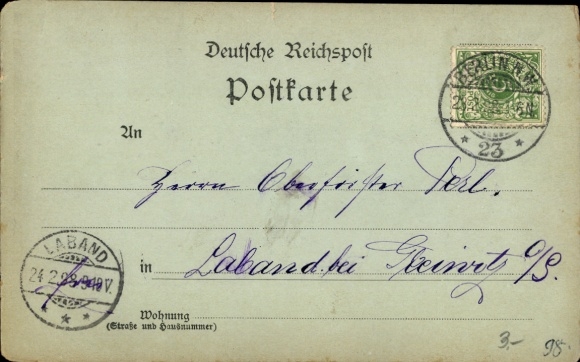 Deutsche Reichspost
Postkarte
BERLIN N.W.
23
An
Herrn Oberförster Perl.
LABAND
24.2.98 9-10V.
in Laband bei Gleiwitz O/S.
Wohnung
(Straße und Hausnummer)
3.-
98